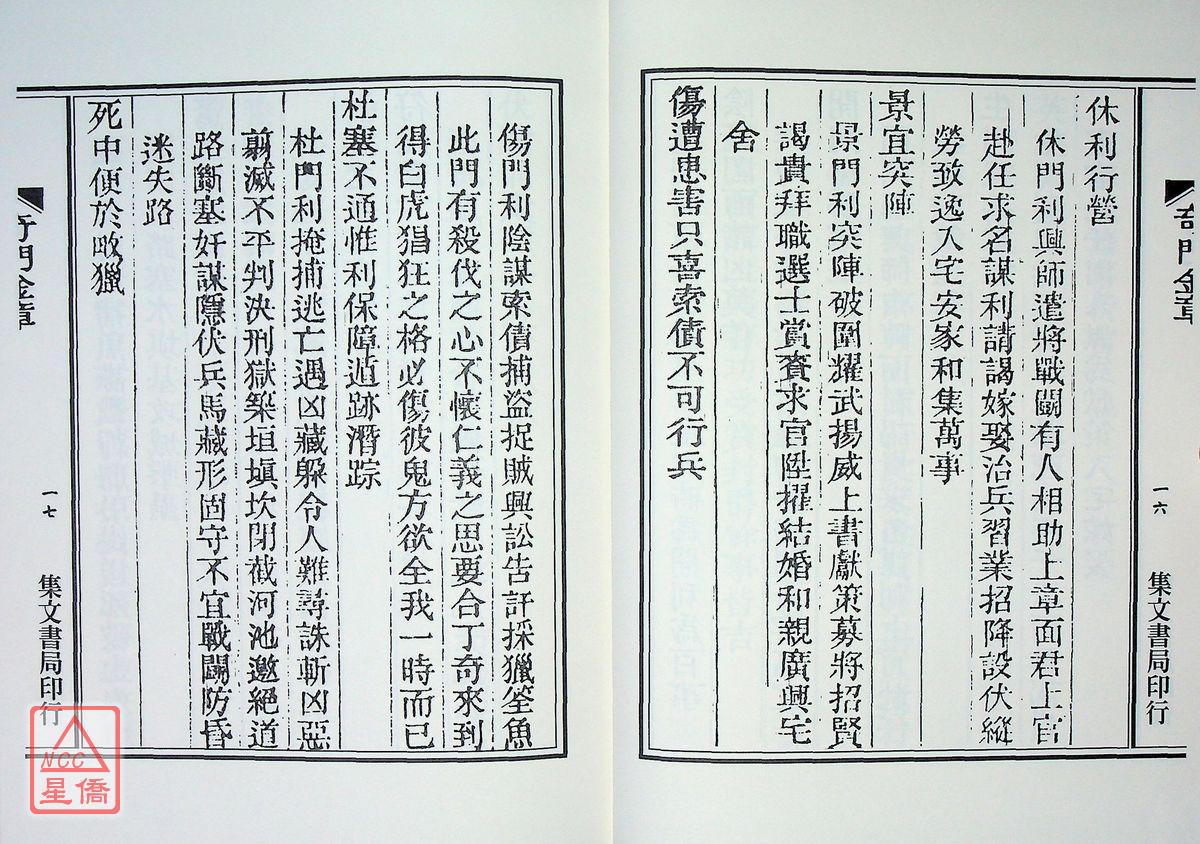 奇門金章
一六
集文書局印行
休利行營
休門利興師遣將戰鬬有人相助上章面君上官
赴任求名謀利請謁嫁娶治兵習業招降設伏縱
勞致逸入宅安家和集萬事
景宜突陣
景門利突陣破圍耀武揚威上書獻策募將招賢
謁貴拜職選士賞賚求官陞擢結婚和親廣興宅
舍
傷遭患害只喜索債不可行兵
傷門利陰謀索債捕盜捉賊興訟告訐採獵筌魚
此門有殺伐之心不懷仁義之思要合丁奇來到
得白虎猖狂之格必傷彼鬼方欲全我一時而已
杜塞不通惟利保障遁跡潛踪
杜門利掩捕逃亡遇凶藏躲令人難尋誅斬凶惡
翦滅不平判決刑獄築垣塡坎閉截河池邀絕道
路斷塞奸謀隱伏兵馬藏形固守不宜戰鬬防昏
迷失路
死中便於畋獵
奇門金章
一七
集文書局印行
NCC
星僑